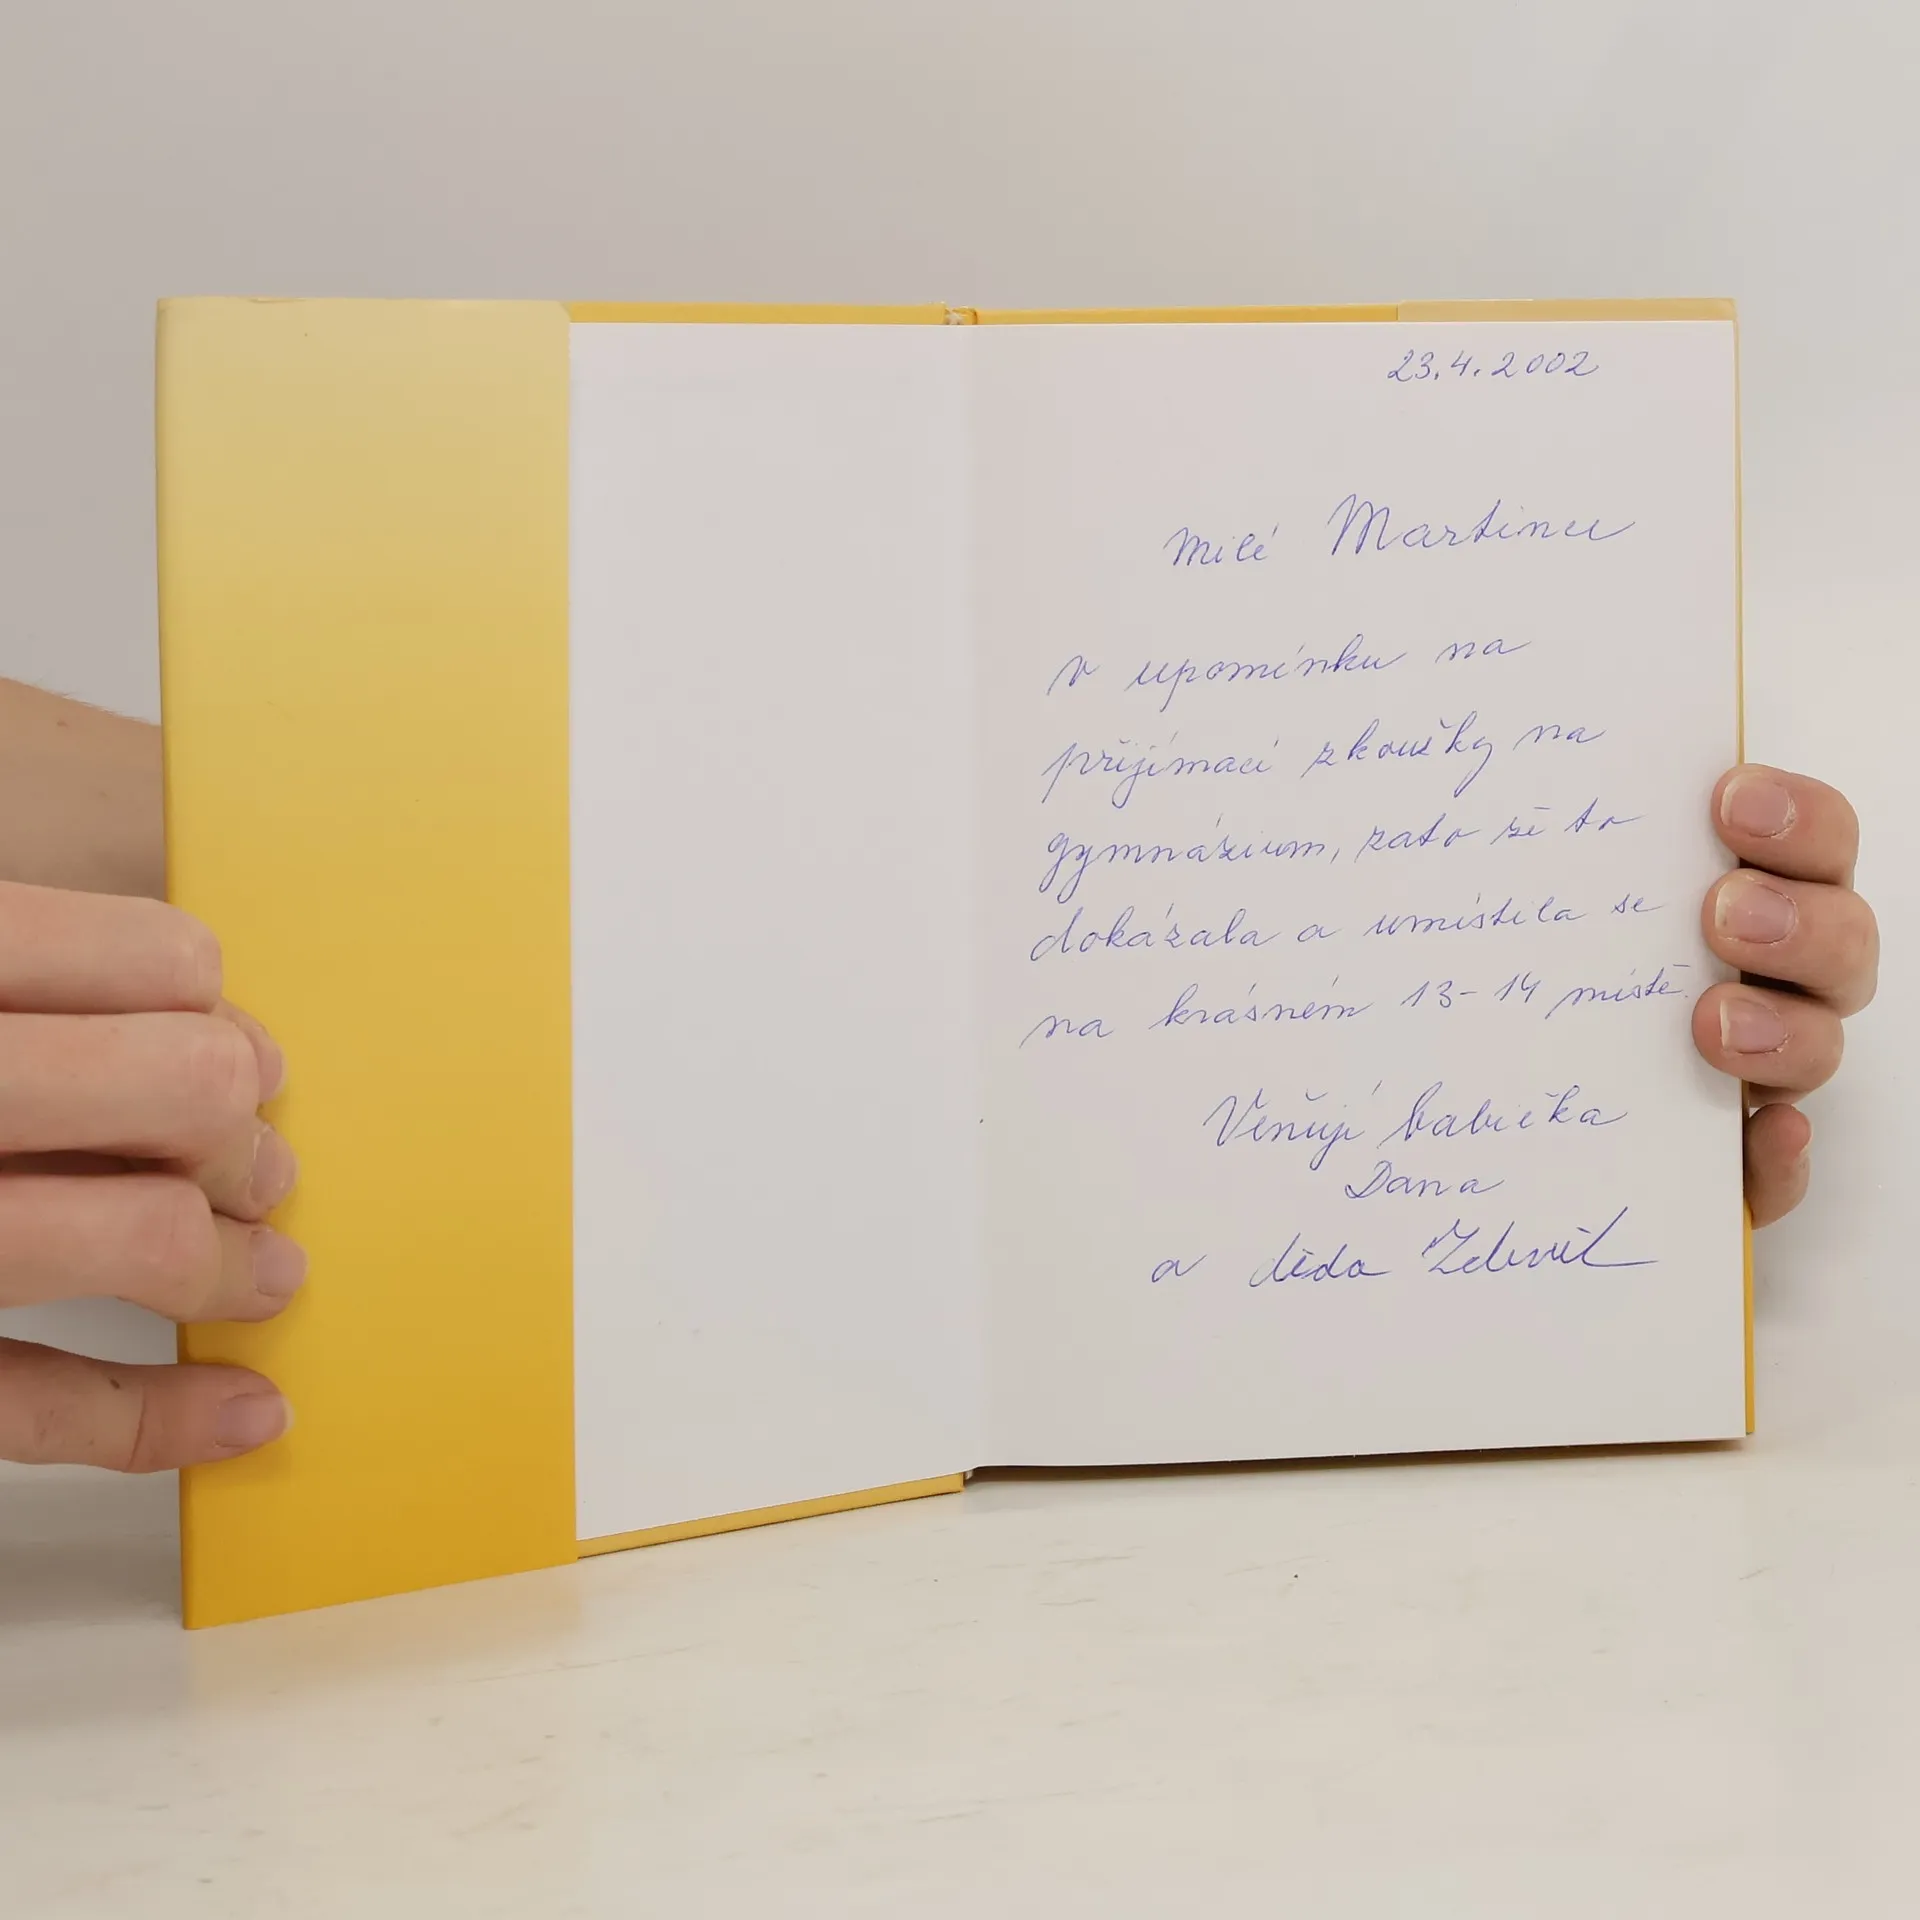 23.4.2002
Milé Martince
v upomínku na
přijímací zkoušky na
gymnázium, zato že to
dokázala a umístila se
na krásném 13-14 místě.
Věnují babička
Dana
a děda